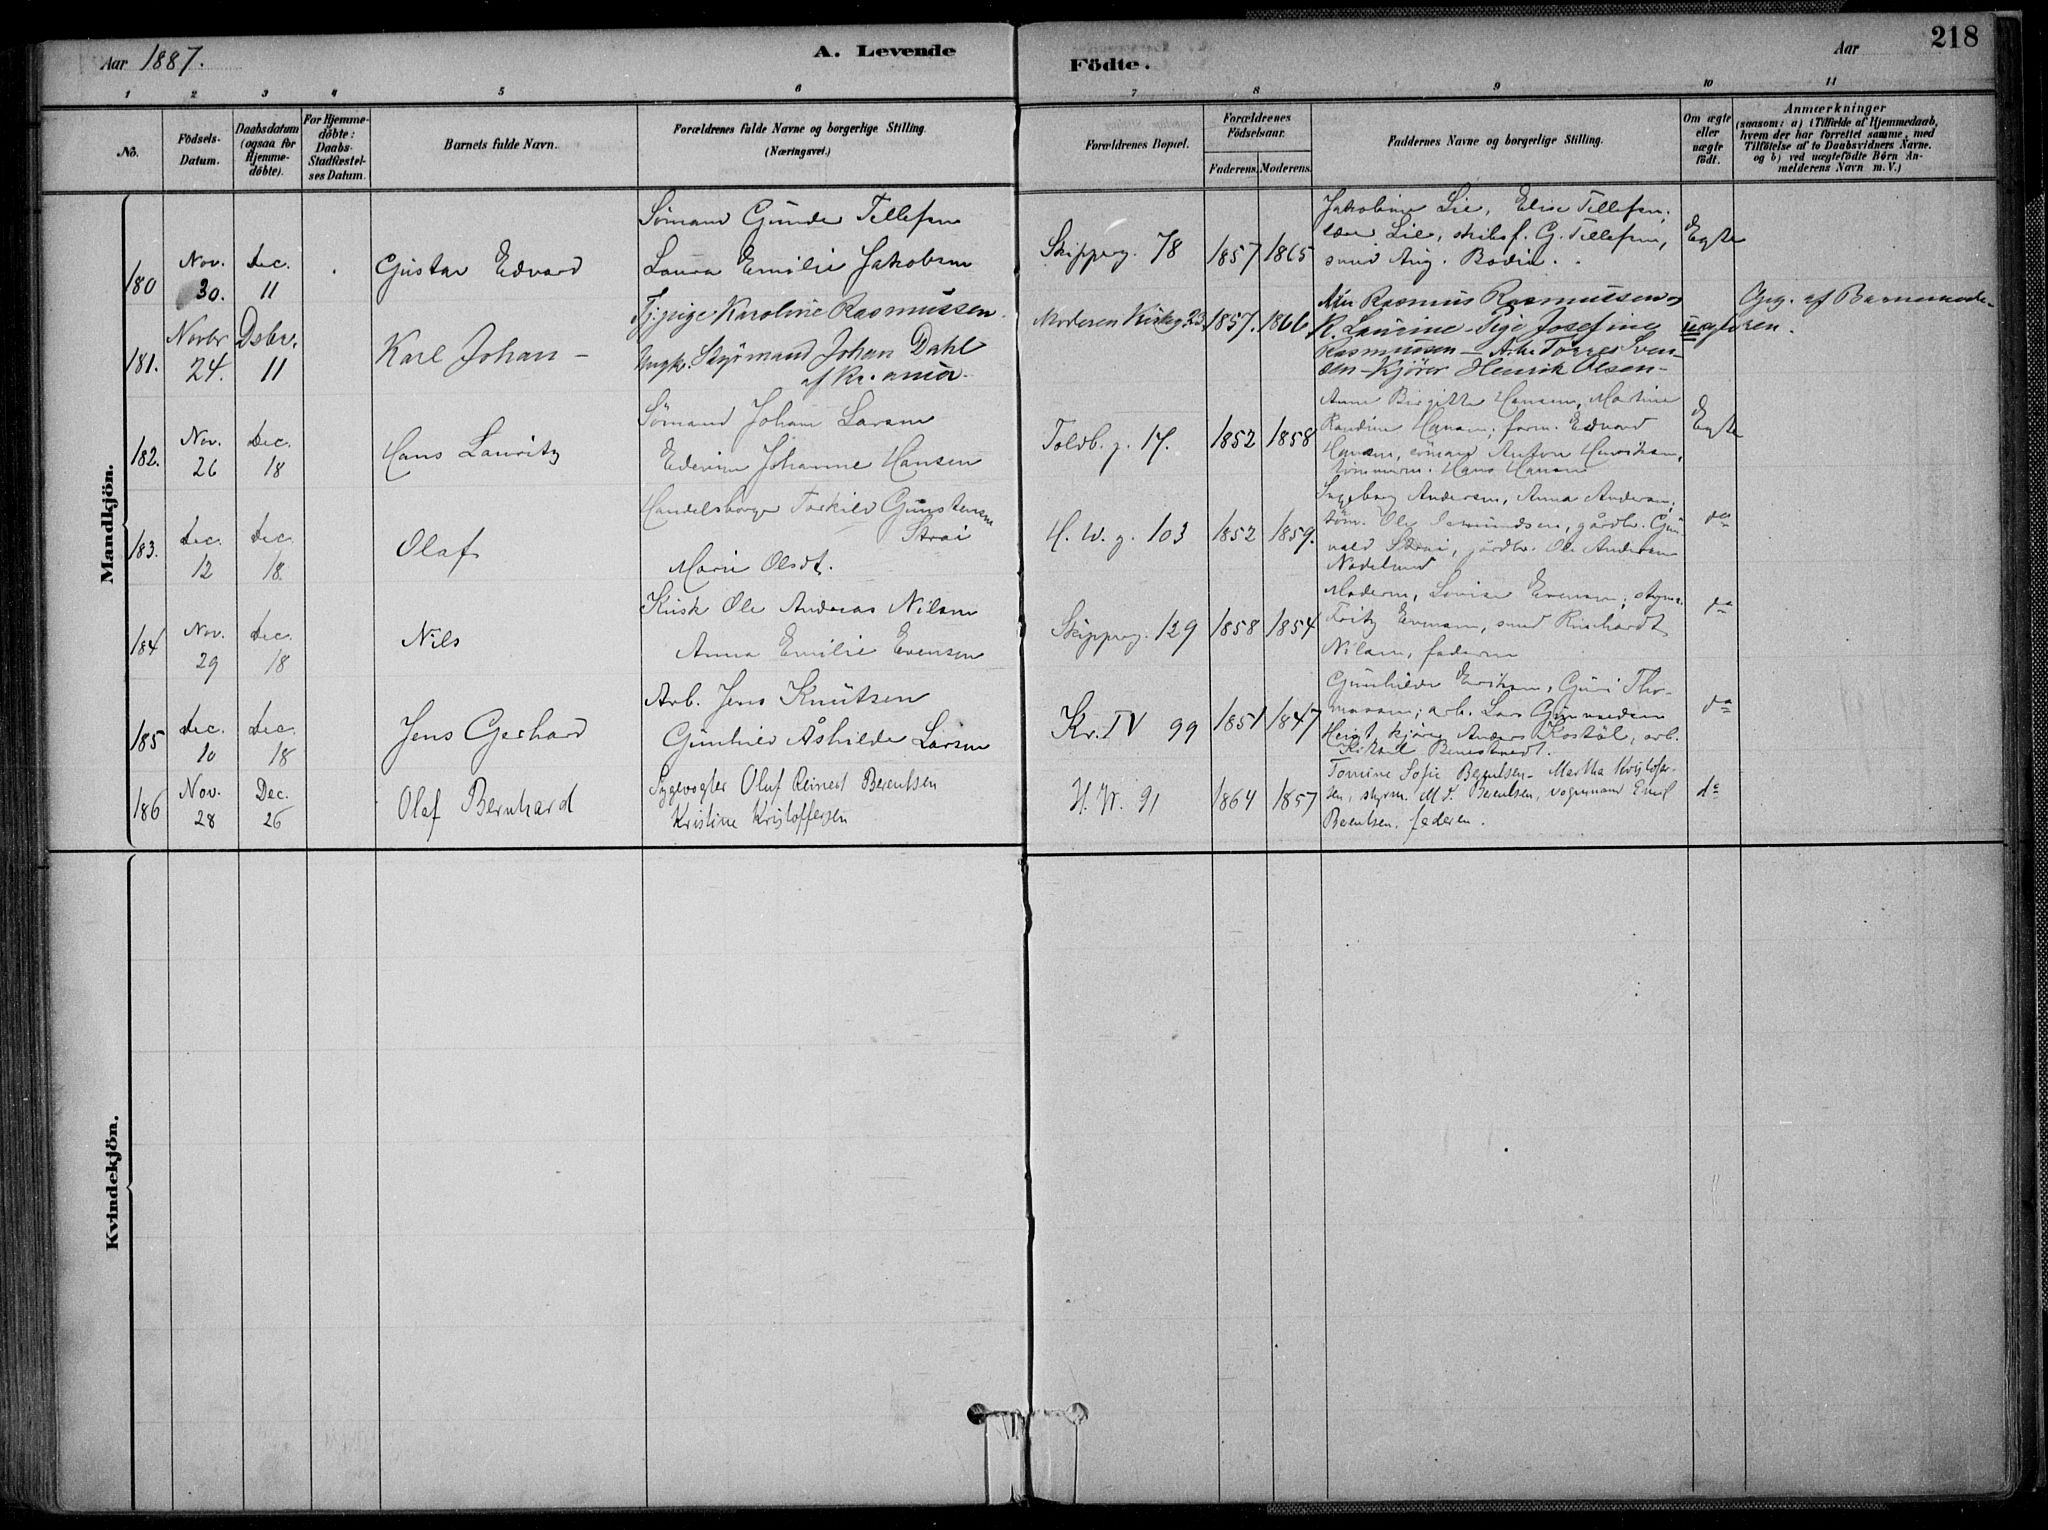 Aar 1887.
A. Levende
Födte.
Aar
218
1 2 3 4 5 6 7 8 9 10 11
No.
Födsels-
Datum.
Daabsdatum
(ogsaa for
Hjemme-
döbte).
For Hjemme-
döbte:
Daabs-
Stadfæstel-
ses Datum.
Barnets fulde Navn.
Forældrenes fulde Navne og borgerlige Stilling.
(Næringsvei.)
Forældrenes Bopæl.
Forældrenes
Födselsaar.
Faderens. Moderens.
Faddernes Navne og borgerlige Stilling.
Om ægte
eller
uægte
födt.
Anmærkninger
(saasom: a) i Tilfælde af Hjemmedaab,
hvem der har forrettet samme, med
Tilföielse af to Daabsvidners Navne.
og b) ved uægtefödte Börn An-
melderens Navn m. V.)
Mandkjön.
180
Nov.
30.
Dec.
11
Gustav Edvard
Sømand Gunde Tellefsen
Laura Emilie Jakobsen
Skipperg. 78
1857 1865
Jakobine Lie, Elise Tellefsen;
Lie, skibsf. G. Tellefsen,
smed Aug. Bodin.
Egte
181.
Novbr
24.
Dsbr.
11
Karl Johan -
Tj.pige Karoline Rasmussen
Ungk. Styrmand Johan Dahl
af
Moderen Kirkeg 23.
1857. 1866
Rasmus Rasmussen og
K. Laurine - Pige Josefine
Rasmussen - Arb. Torres Sven-
sen - Kjører Henrik Olsen -
uægte
Opg. af Barnemode-
ren.
182.
Nov.
26
Dec.
18
Hans Lauritz
Sømand Johan Larsen
Edevine Johanne Hansen
Toldb. g. 17.
1852 1858
Anne Birgitte Hansen, Martine
Randine Hansen; form. Edvard
Hansen, sömand Anton Henriksen,
tömmerm. Hans Hansen
Egte
183.
Dec.
12
Dec.
18.
Olaf
Handelsborger Torkild Gunstensen
Strai
Marie Olsdt.
H. W. g. 103
1852 1859.
Ingeborg Andersen, Anna Andersen;
töm. Ole Osmundsen, gårdbr. Gun-
vald Strai, gårdbr. Ole Andersen
Nodeland
do
184
Nov.
29
Dec.
18
Nils
Kusk Ole Andreas Nilsen
Anna Emilie Evensen
Skipperg. 129
1858 1854
Moderen, Lovise Evensen; styrm.
Fritz Evensen, smed Reinhardt
Nilsen, faderen
do
185
Dec.
10
Dec.
18
Jens Gerhard
Arb. Jens Knutsen
Gunhild Åshilde Larsen
Kv. IV 99
1851 1847
Gunhilde Eriksen, Guri Tho-
massen; arb. Lars Gunvaldsen
kjörer Anders Kostöl, arb.
Benestvedt.
do
186
Nov.
28
Dec.
26
Olaf Bernhard
Sygevogter Oluf Reinert Berentsen
Kristine Kristoffersen
H. W. 91
1864 1857
Tomine Sofie Berentsen - Martha Kristofer-
sen, styrm. M. T. Berentsen, vognmand Emil
Berentsen, faderen.
do
Kvindekjön.